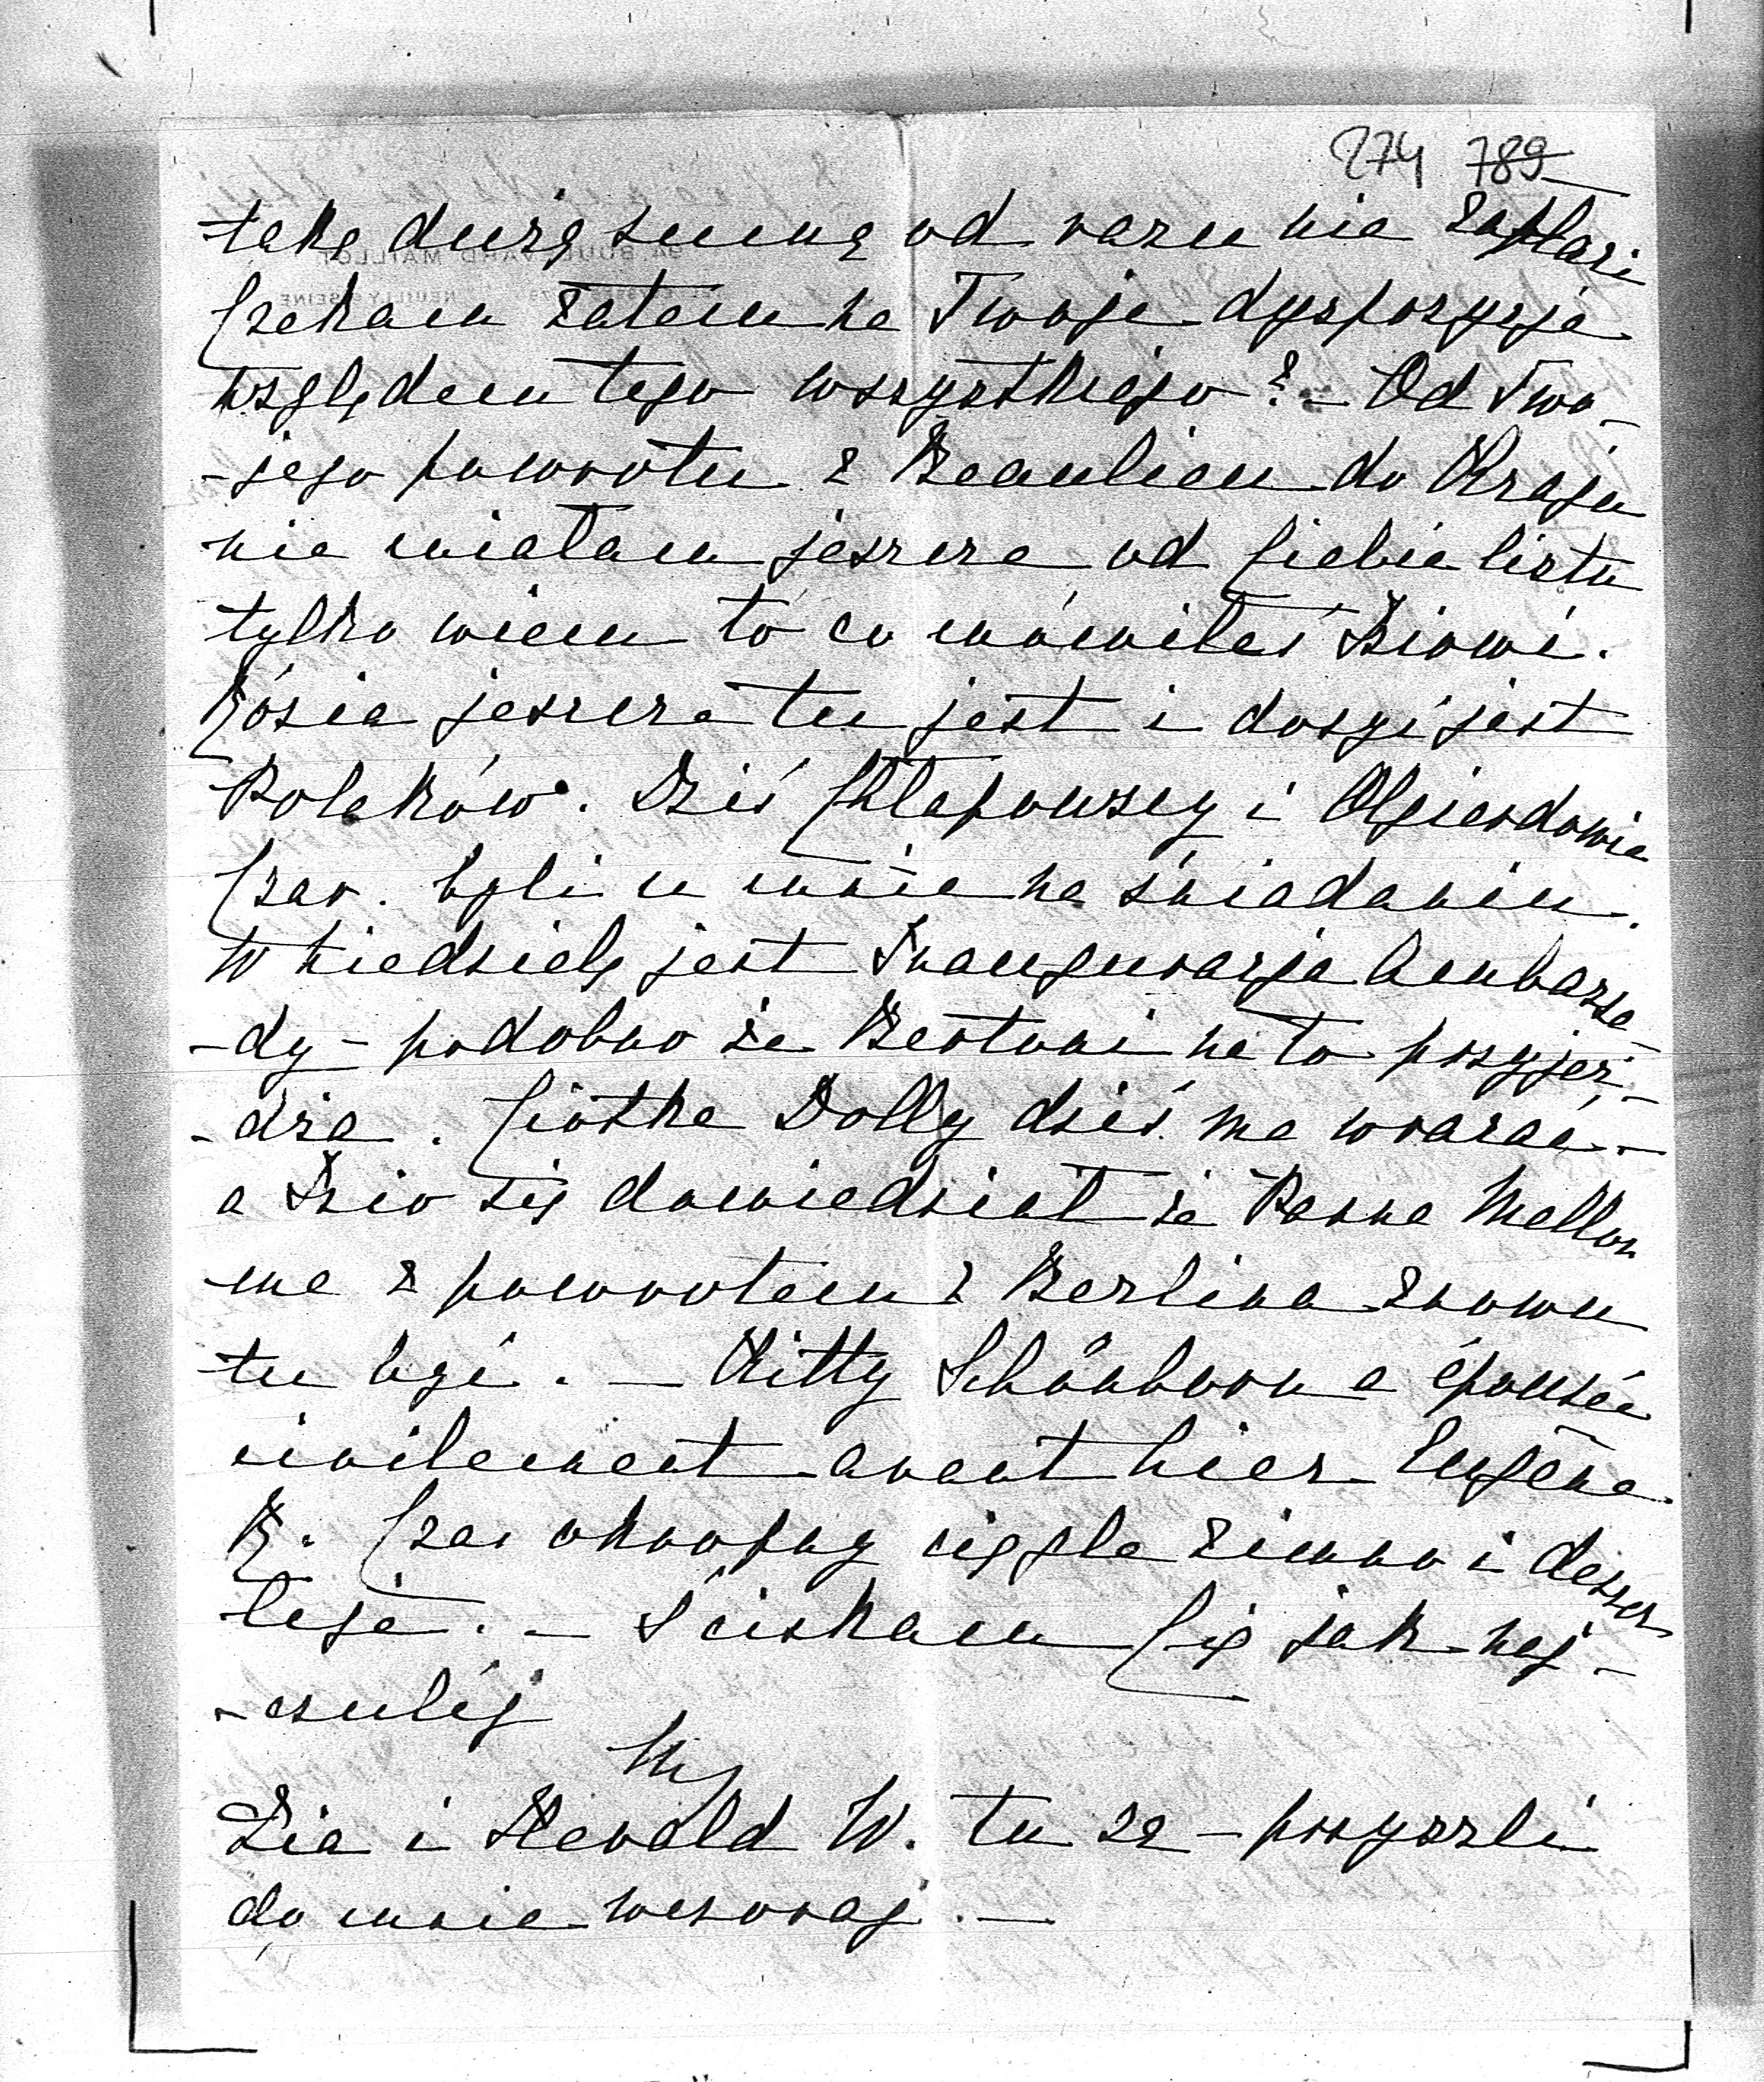 274 789
taką dużą sumę od razu nie zapłaci
Czekam zatem na Twoje dyspozycje
względem tego wszystkiego? - Od Two-
-jego powrotu z Beaulieu do Kraju
nie miałam jeszcze od Ciebie listu
tylko wiem to co mówiłeś Dziowi.
Rózia jeszcze tu jest i dosyć jest
Polaków. Dziś Chłapowscy i Olgierdowie
Czar. byli u mnie na śniadaniu.
W niedzielę jest Inauguracja Ambasa-
-dy - podobno że Bertoni na to przyjeż-
-dża. Ciotka Dolly dziś ma wracać -
a Dzio się dowiedział że Panna Mellon
ma z powrotem z Berlina znowu
tu być. - Kitty Schönborn a épousée
civilement avant hier Eugène
R. Czas okropny ciągle zimno i deszcz
leje. - Ściskam Cię jak naj-
-czulej
i Harald W. tu są - przyszli
do mnie wczoraj. -
94 BOULEVARD MAILLOT
NEUILLY S/SEINE